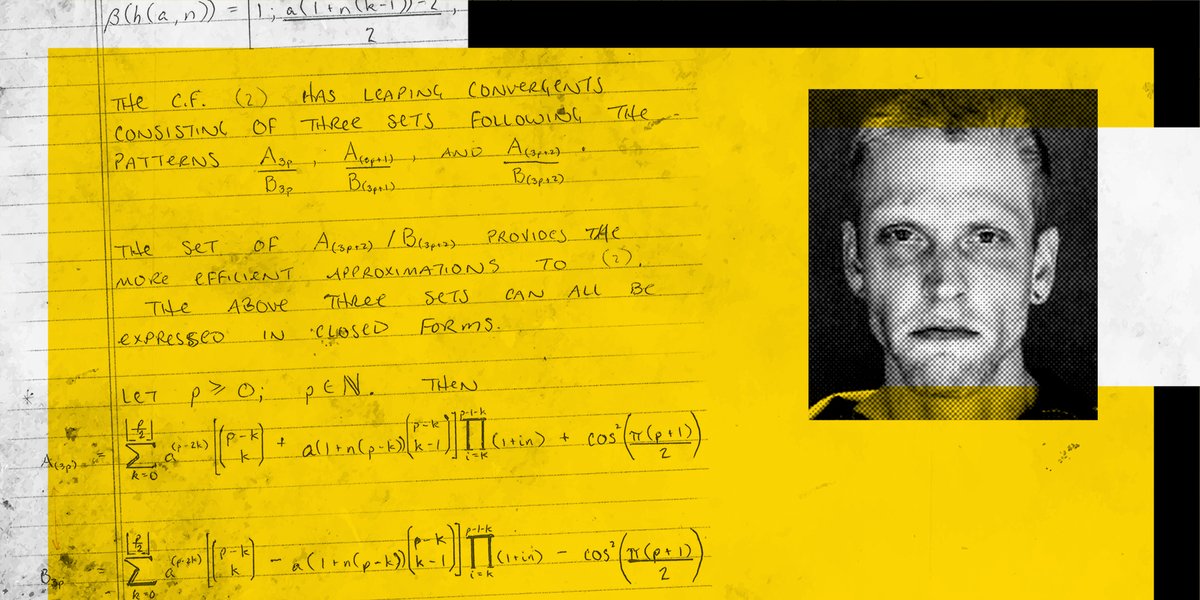 β(h(a,n)) = [1; a(1+n(k-1))-2 / 2,
THE C.F. (2) HAS LEAPING CONVERGENTS
CONSISTING OF THREE SETS FOLLOWING THE
PATTERNS A_{3p}/B_{3p}, A_{(3p+1)}/B_{(3p+1)}, AND A_{(3p+2)}/B_{(3p+2)}.
THE SET OF A_{(3p+2)}/B_{(3p+2)} PROVIDES THE
MORE EFFICIENT APPROXIMATIONS TO (2).
THE ABOVE THREE SETS CAN ALL BE
EXPRESSED IN CLOSED FORMS.
LET p ≥ 0; p ∈ ℕ. THEN
A_{(3p)} = ∑_{k=0}^{⌊p/2⌋} a^{(p-2k)} [(p-k choose k) + a(1+n(p-k))(p-k choose k-1)] ∏_{i=k}^{p-1-k} (1+in) + cos²(π(p+1)/2)
B_{3p} = ∑_{k=0}^{⌊p/2⌋} a^{(p-2k)} [(p-k choose k) - a(1+n(p-k))(p-k choose k-1)] ∏_{i=k}^{p-1-k} (1+in) - cos²(π(p+1)/2)